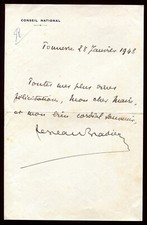 CONSEIL NATIONAL
Tonnerre 28 Janvier 1943
Toutes mes plus vives
félicitations, mon cher Maire,
et mon bien cordial souvenir,